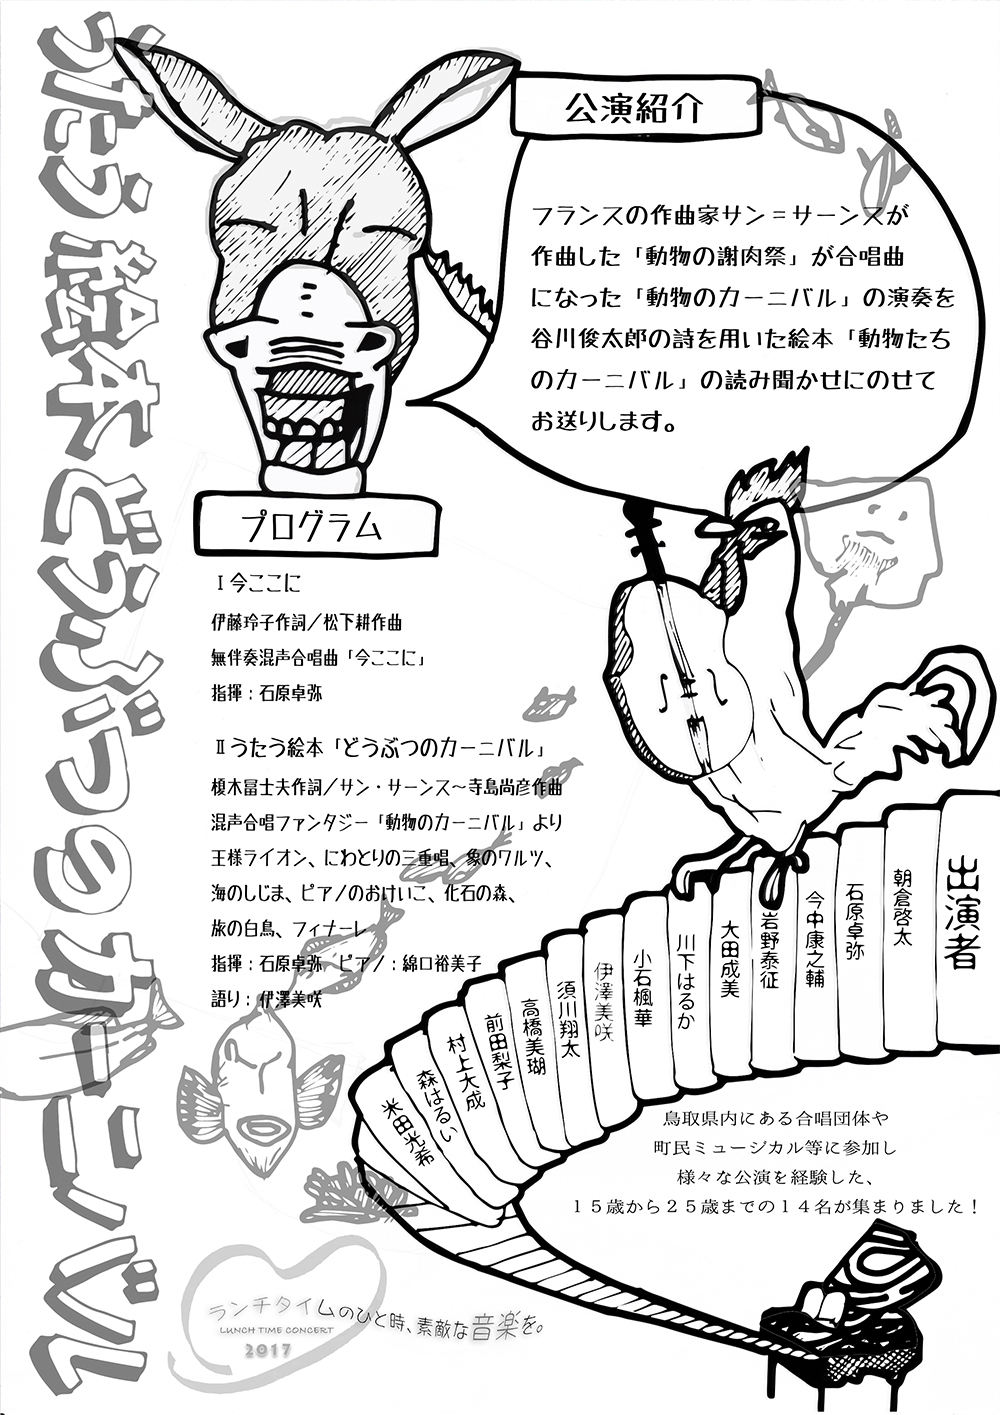 うたう絵本どうぶつのカーニバル
公演紹介
フランスの作曲家サン＝サーンスが
作曲した「動物の謝肉祭」が合唱曲
になった「動物のカーニバル」の演奏を
谷川俊太郎の詩を用いた絵本「動物たち
のカーニバル」の読み聞かせにのせて
お送りします。
プログラム
Ⅰ今ここに
伊藤玲子作詞／松下耕作曲
無伴奏混声合唱曲「今ここに」
指揮：石原卓弥
Ⅱうたう絵本「どうぶつのカーニバル」
榎木冨士夫作詞／サン・サーンス～寺島尚彦作曲
混声合唱ファンタジー「動物のカーニバル」より
王様ライオン、にわとりの三重唱、象のワルツ、
海のしじま、ピアノのおけいこ、化石の森、
旅の白鳥、フィナーレ
指揮：石原卓弥　ピアノ：綿口裕美子
語り：伊澤美咲
出演者
朝倉啓太
石原卓弥
今中康之輔
岩野泰征
大田成美
川下はるか
小石楓華
伊澤美咲
須川翔太
高橋美瑚
前田梨子
村上大成
森はるい
米田光希
鳥取県内にある合唱団体や
町民ミュージカル等に参加し
様々な公演を経験した、
１５歳から２５歳までの１４名が集まりました！
ランチタイムのひと時、素敵な音楽を。
LUNCH TIME CONCERT
2017